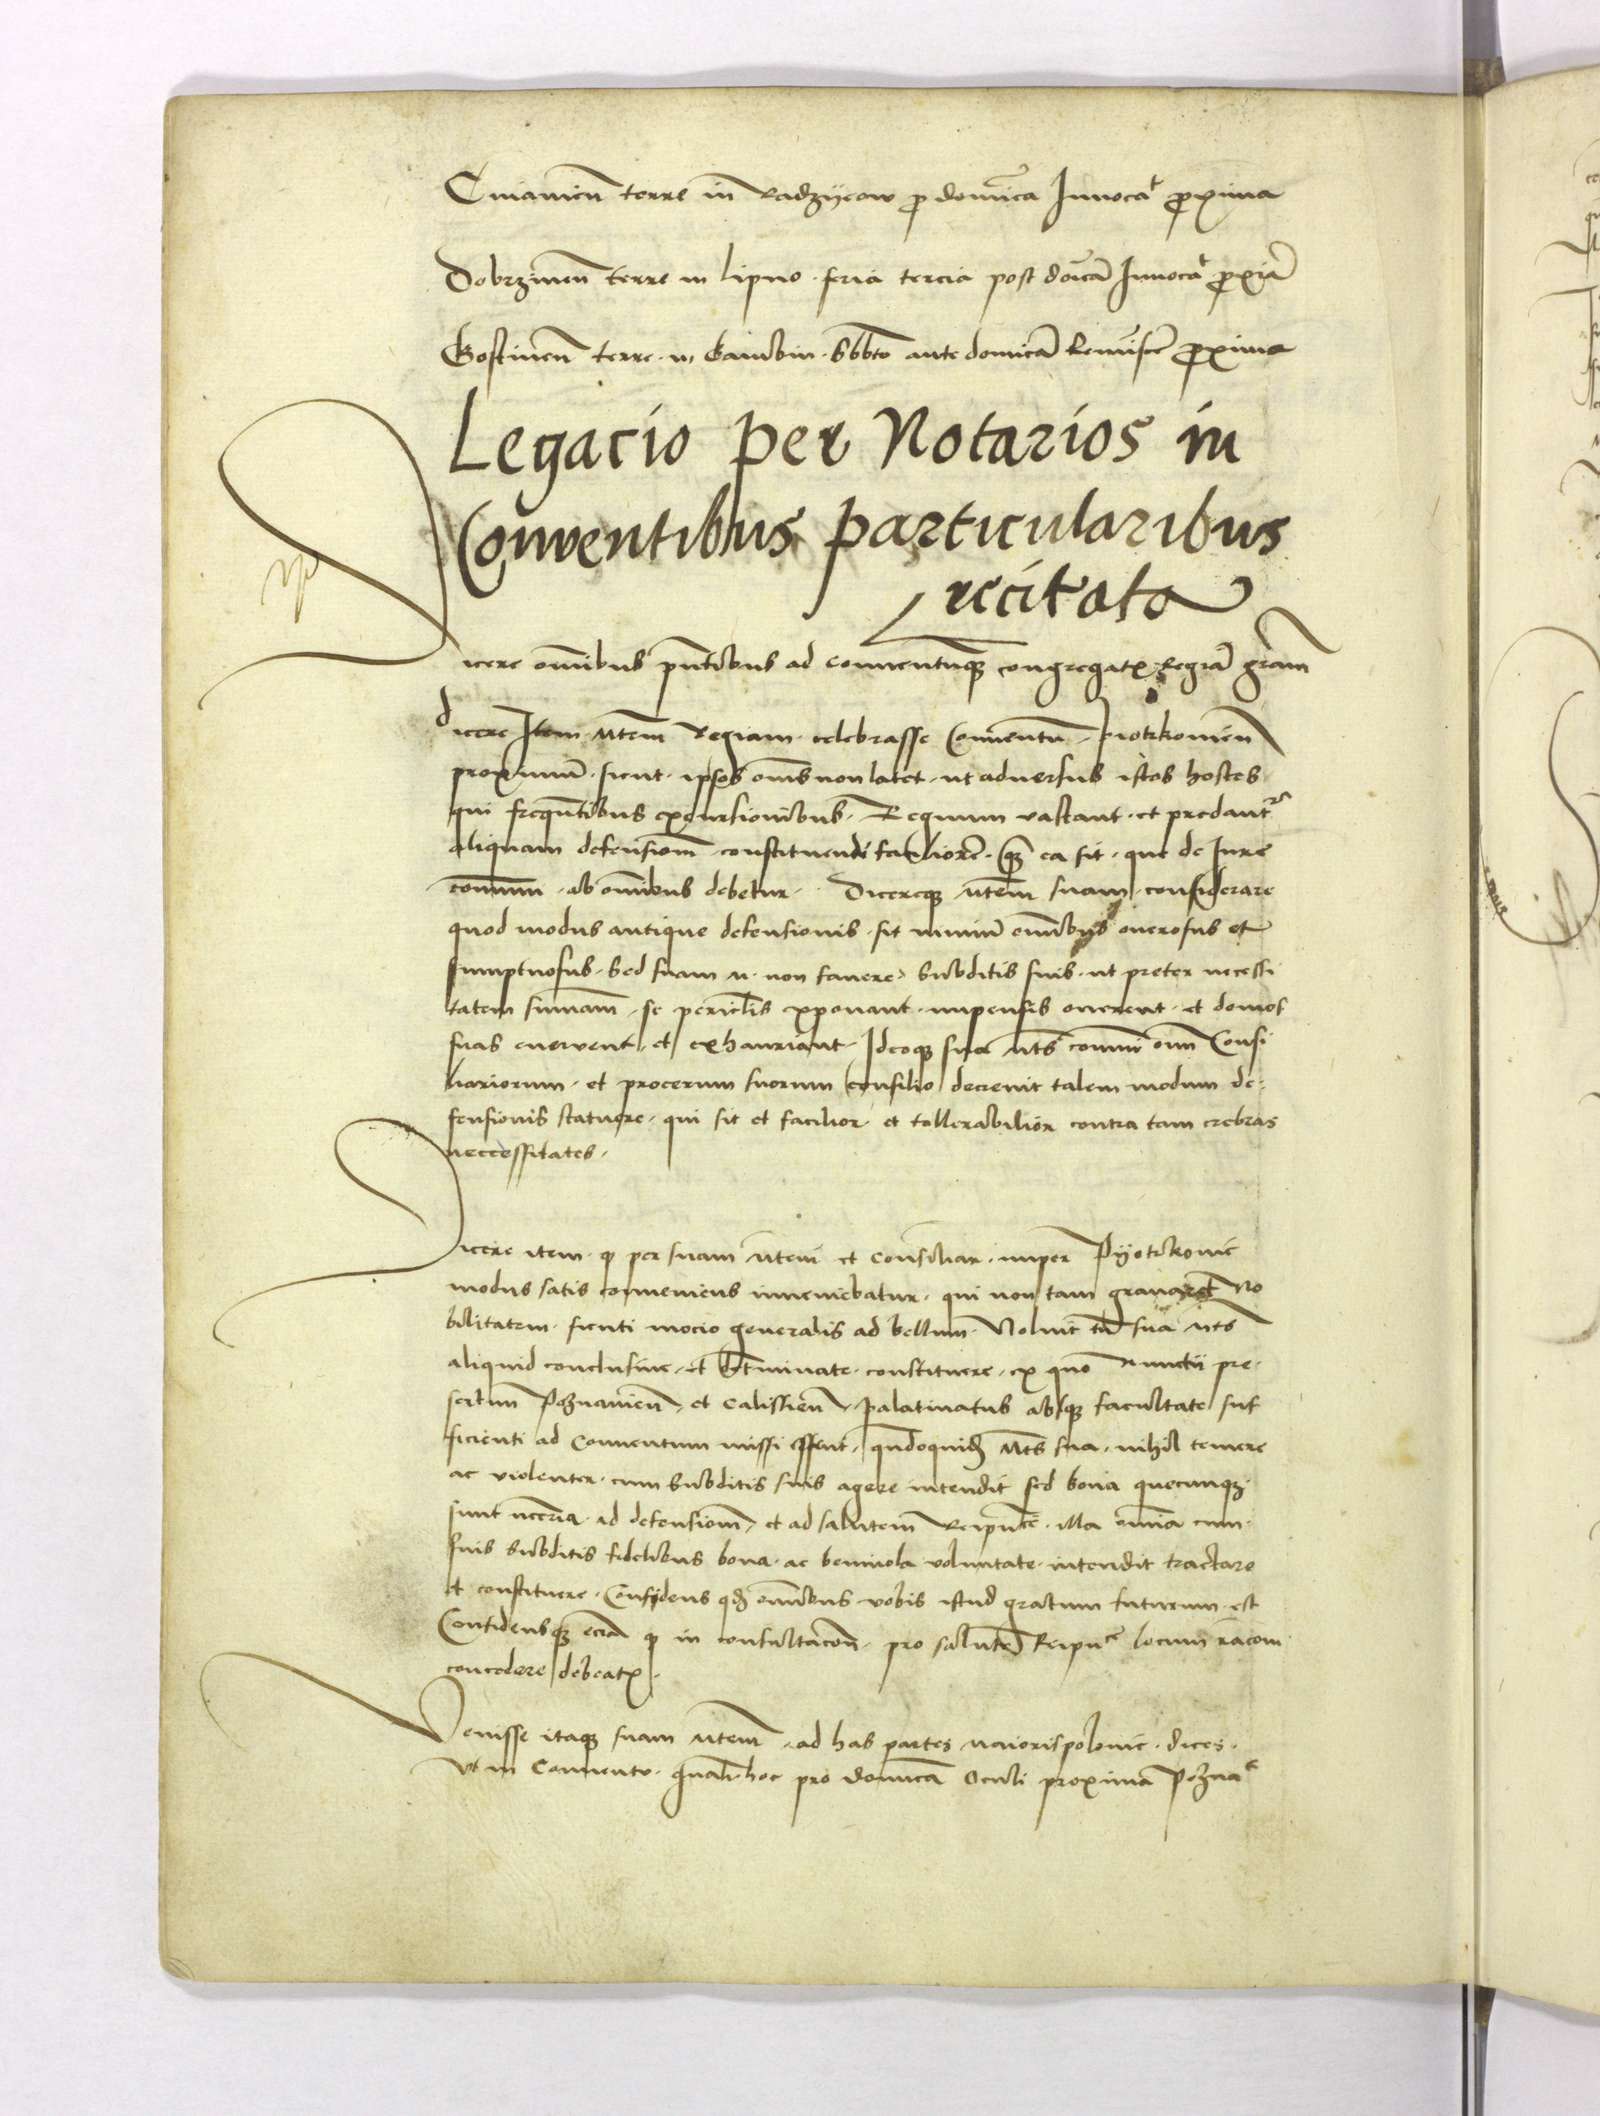 Cuiavien̄ terre in Radzyeow p domīca Inuoca͛ proxima
Dobrzinen̄ terre in Lipno · feria tercia post doīcā Inuoca͛ proxīa
Gostinen̄ terre · in Gambin · Sbb̄to ante domīcā Remisce͛ proxima
Legacio per Notarios in
Conventibus particularibus
recitata
Dicere om̄ibus pn̄tibus ad conuentumq̢ congregatꝭ Regiā gr̄am
dicere Item Mtem Regiam · celebrasse Conuentū · piotrkouien̄
proximum̄ · sicut · ipsos om̄s non latet · ut aduersus istos hostes
qui frequn̄tibus excursionibus · Regnum vastant · et predant᷑
aliquam defensionem̄ · constituendi faciliorē · ea sit · que de Iure
commun̄ · ab om̄ibus debetur · Dicereq̢ Mtem suam · considerare
quod modus antique defensionis · sit nimiū om̄ibus onerosus et
sumptuosus · Sed suam M · non fauere · Subditis suis · ut preter necessi
tatem sum̄am · se periclis exponant · impensis onerent · et domos
suas eneruent · et exhauriant · Ideoq̢ sua Mts commūi om̄ Consi
liariorum · et procerum suorum consilio decreuit talem modum de-
fensionis statuere · qui sit et facilior · et tollerabilior contra tam crebras
neccessitates ·
Dicere item · ꝙ per suam Mtem et consiliar · nuper Pyotrkouie
modus satis conueniens inueniebatur · qui non tam grauaret No
bilitatem · sicuti mocio generalis ad bellum · Noluit tn̄ sua Mts
aliquid conclusiue · et determinate · constituere · ex quo Nunctii pre-
sertim Poznanien̄ · et Calissien̄ · palatinatus absq̢ facultate suf
ficienti ad Conuentum missi essent · quādoquidē Mts sua · nihil temere
ac violenter · cum Subditis suis agere intendit sed bona quecunq̢
sunt necc̄ria · ad defensionem̄ · et ad salutem Reipub̄ce · illa om̄ia cum
suis Subditis fidelibus bona · ac beniuola voluntate · intendit tractare
et constituere · Confidens qđ om̄ibus vobis istud gratum futurum · est
Confidensq̢ eciā ꝙ in consultacōn · pro salutē Reipu͛ locum rac̄om
concedere debeatꝭ ·
Venisse itaq̢ suam Mtem · ad has partes Maiorispolonie · dices ·
Ut in Conuentu · hoc pro domīcā Oculi proximā Pozna͛